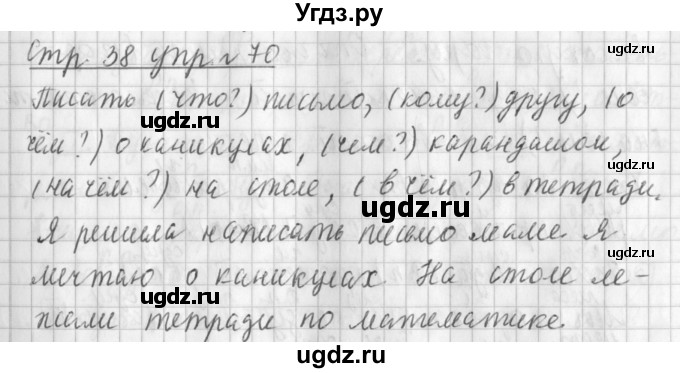 Угдз.ру
Стр. 38 упр. № 70
ugdz.ru
ugdz.ru
Писать (что?) письмо, (кому?) другу, (о
ugdz.ru
чём?) о каникулах, (чем?) карандашом,
ugdz.ru
(на чём?) на столе, (в чём?) в тетради.
ugdz.ru
Я решила написать письмо маме. Я
ugdz.ru
ugdz.ru
мечтаю о каникулах. На столе ле-
ugdz.ru
жали тетради по математике.
ugdz.ru
ugdz.ru